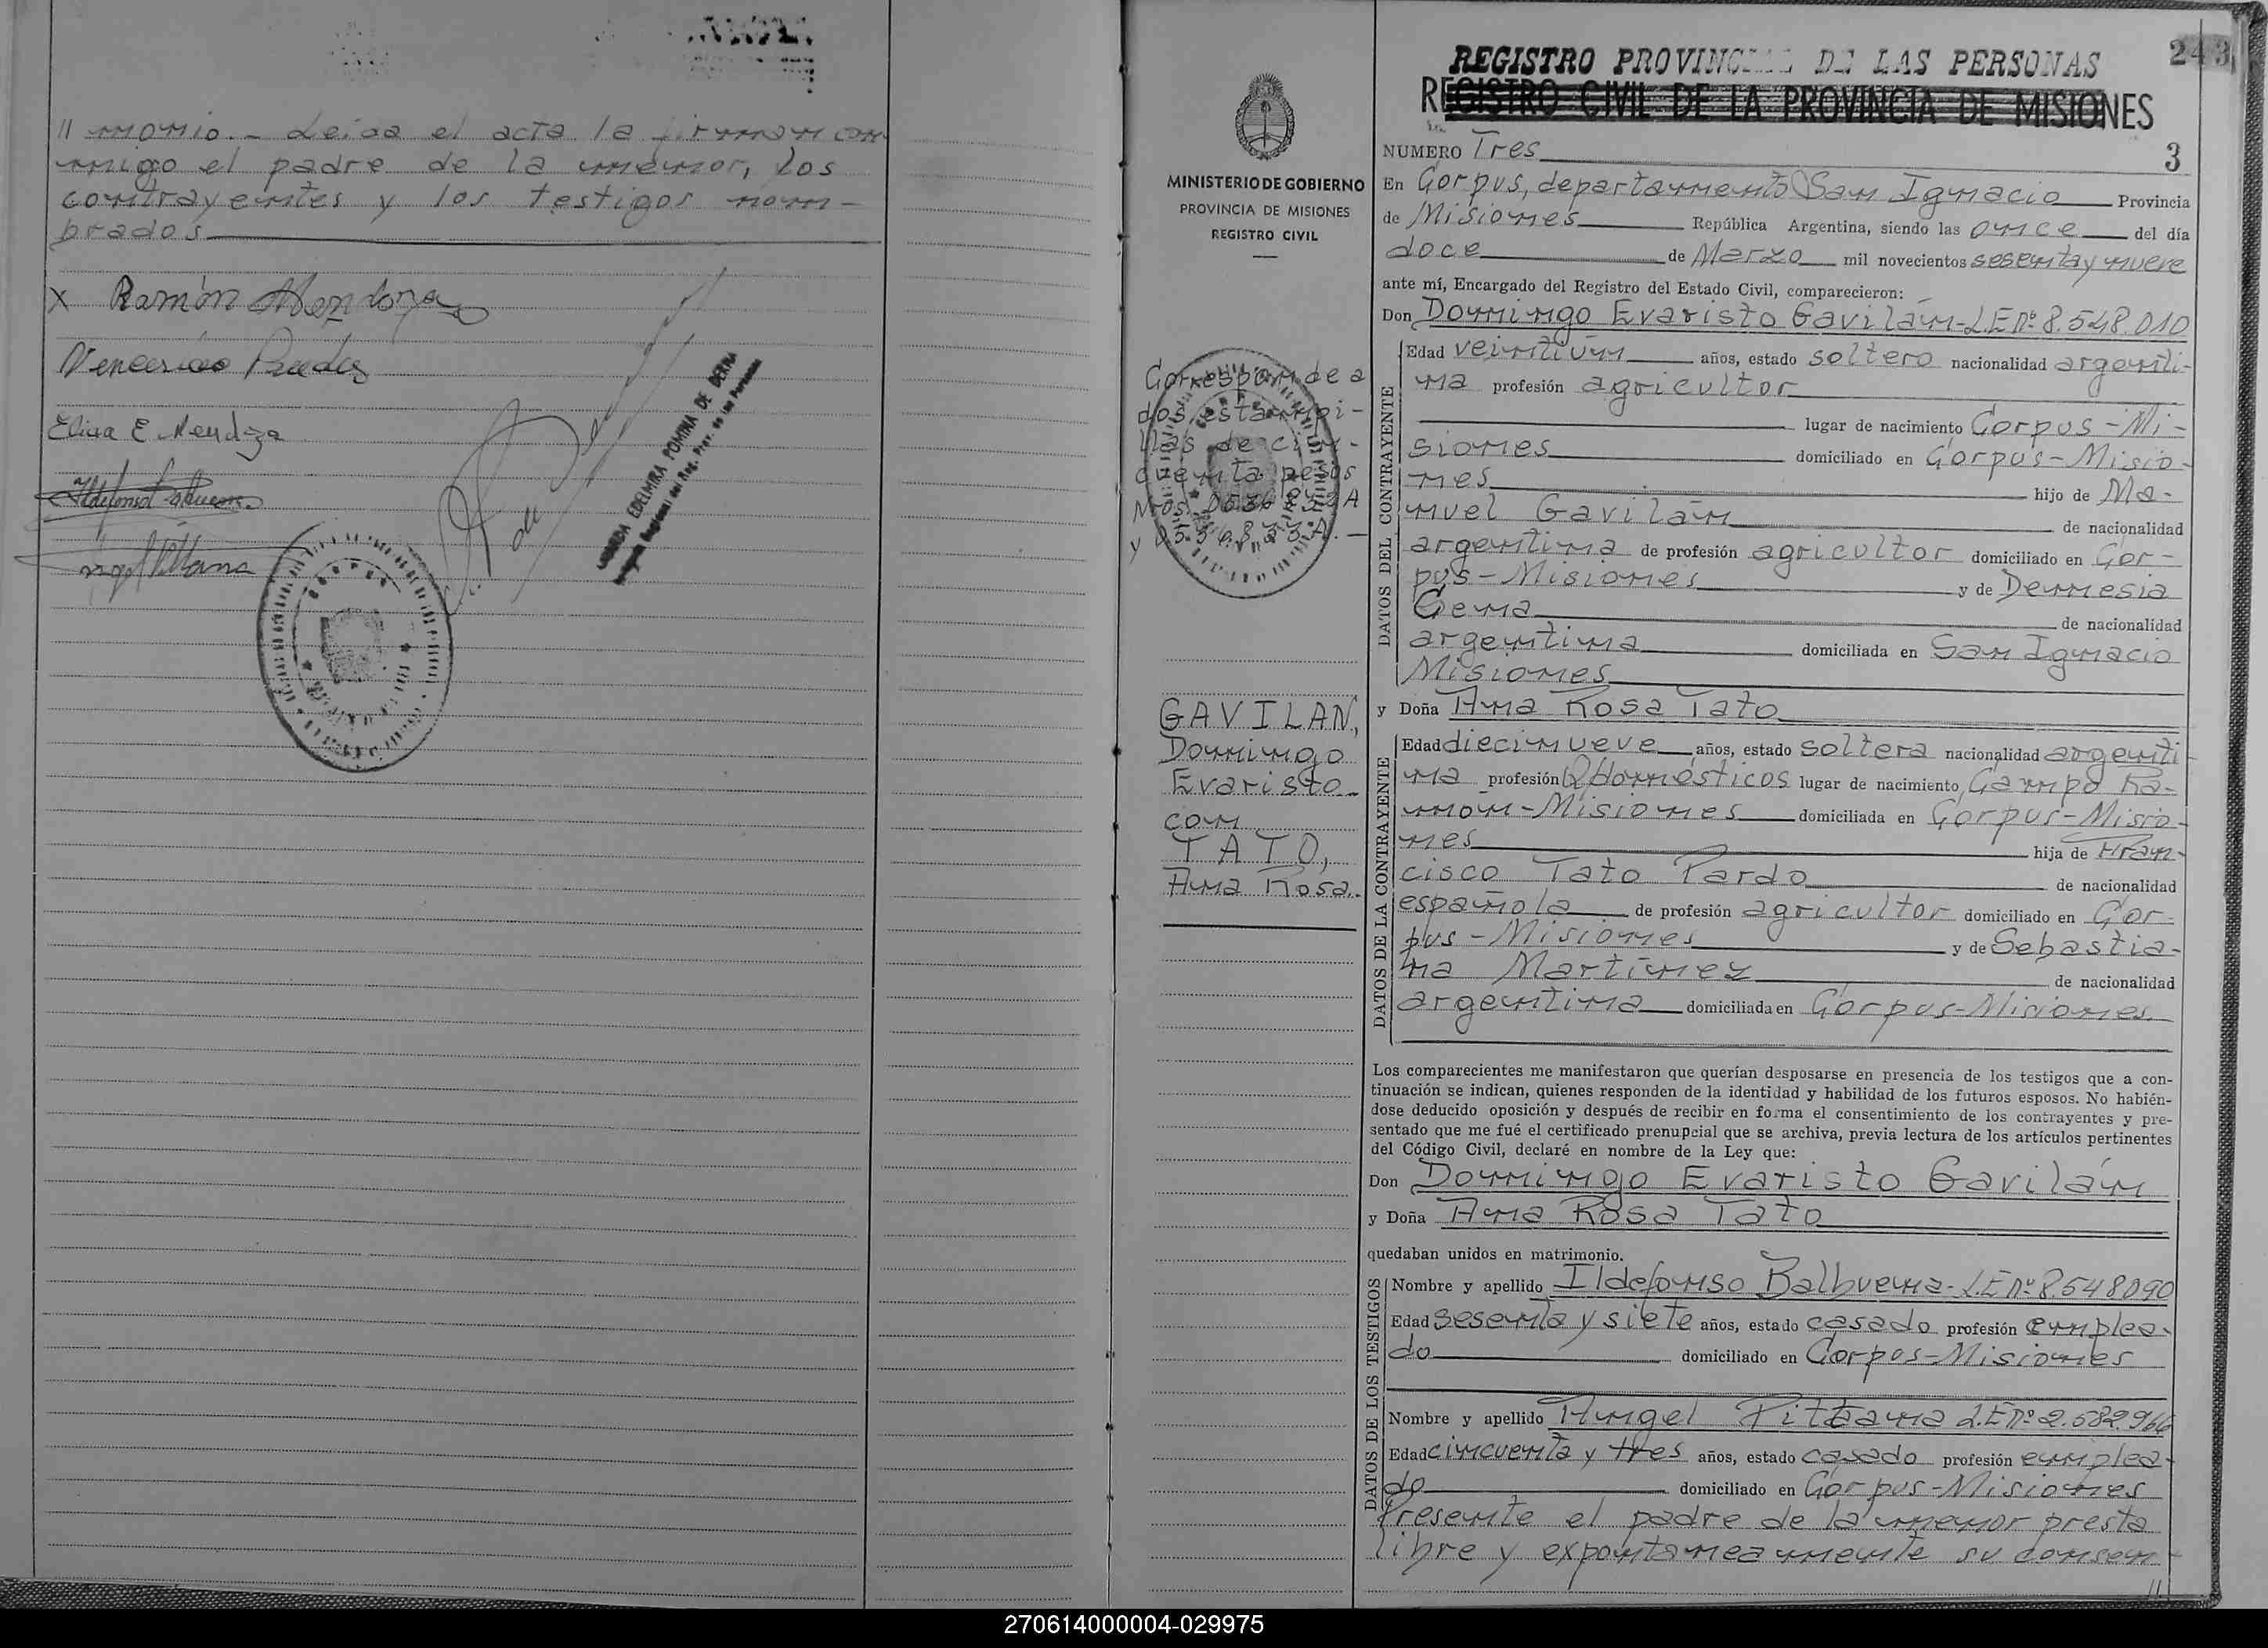 // monio.- Leida el acta la firman con
migo el padre de la menor, los
contrayentes y los testigos nom-
brados
X Ramón Mendoza
Elina E. Mendoza
MINISTERIO DE GOBIERNO
PROVINCIA DE MISIONES
REGISTRO CIVIL
Corresponde a
dos estampi-
llas de cin-
cuenta pesos
GAVILAN,
Domingo
Evaristo
con
TATO,
Ana Rosa.
REGISTRO PROVINCIAL DE LAS PERSONAS
243
REGISTRO CIVIL DE LA PROVINCIA DE MISIONES
NUMERO Tres
3
En Corpus, departamento San Ignacio Provincia
de Misiones República Argentina, siendo las once del día
doce de Marzo mil novecientos sesenta y nueve
ante mí, Encargado del Registro del Estado Civil, comparecieron:
Don Domingo Evaristo Gavilán-L.E nº 8.548.010
DATOS DEL CONTRAYENTE
Edad veintiún años, estado soltero nacionalidad argenti-
na profesión agricultor
lugar de nacimiento Corpus-Mi-
siones domiciliado en Corpus-Misio-
nes hijo de Ma-
nuel Gavilán de nacionalidad
argentina de profesión agricultor domiciliado en Cor-
pus-Misiones y de Demesia
Gena de nacionalidad
argentina domiciliada en San Ignacio
Misiones
y Doña Ana Rosa Tato
DATOS DE LA CONTRAYENTE
Edad diecinueve años, estado soltera nacionalidad argenti
na profesión Q/domésticos lugar de nacimiento Campo Ra-
món-Misiones domiciliada en Corpus-Misio-
nes hija de Fran-
cisco Tato Pardo de nacionalidad
española de profesión agricultor domiciliado en Cor-
pus-Misiones y de Sebastia-
na Martínez de nacionalidad
argentina domiciliada en Corpus-Misiones
Los comparecientes me manifestaron que querían desposarse en presencia de los testigos que a con-
tinuación se indican, quienes responden de la identidad y habilidad de los futuros esposos. No habién-
dose deducido oposición y después de recibir en forma el consentimiento de los contrayentes y pre-
sentado que me fué el certificado prenupcial que se archiva, previa lectura de los artículos pertinentes
del Código Civil, declaré en nombre de la Ley que:
Don Domingo Evaristo Gavilán
y Doña Ana Rosa Tato
quedaban unidos en matrimonio.
DATOS DE LOS TESTIGOS
Nombre y apellido Ildefonso Balbuena-L.E nº 8.548090
Edad sesenta y siete años, estado casado profesión emplea-
do domiciliado en Corpus-Misiones
Nombre y apellido Angel Pittana L.E nº 2.582.966
Edad cincuenta y tres años, estado casado profesión emplea-
do domiciliado en Corpus-Misiones
Presente el padre de la menor presta
libre y expontaneamente su consen-
//
270614000004-029975